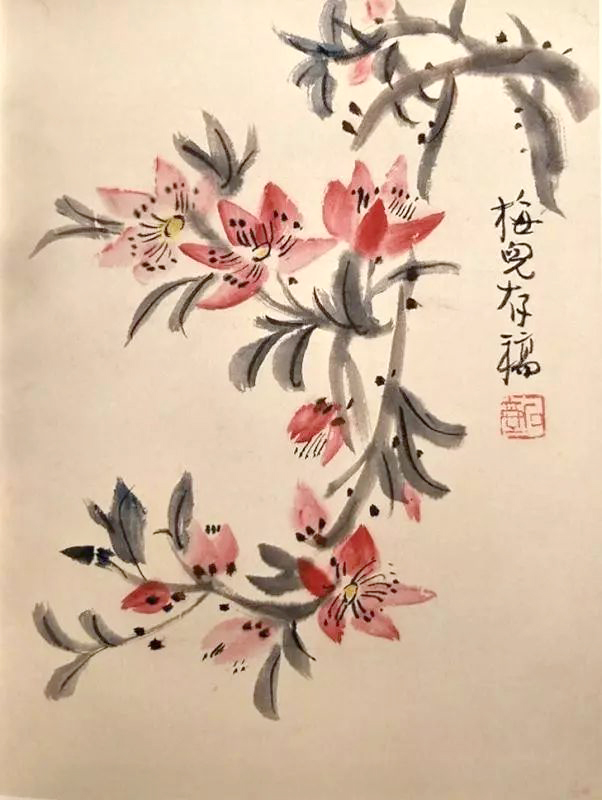 梅兒存稿